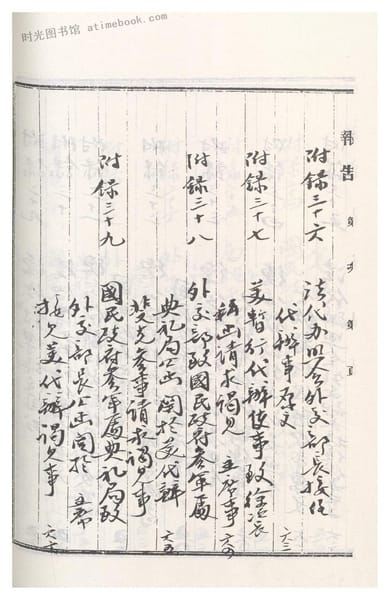 时光图书馆 atimebook.com
報告 第 夾 第 頁
附録三十六 法代办照会外交部長接任
代辦事原文 六三
附録三十七 美暫行代辦使事致徐次長
稱函请求謁見 主席事 六四
附録三十八 外交部致國民政府參軍處
典礼局公函 関於美代辦
斐克參事請求謁見事 六五
附録三十九 國民政府參軍處典礼局致
外交部長公函 関於 主席
接見美代辦謁見事 六六